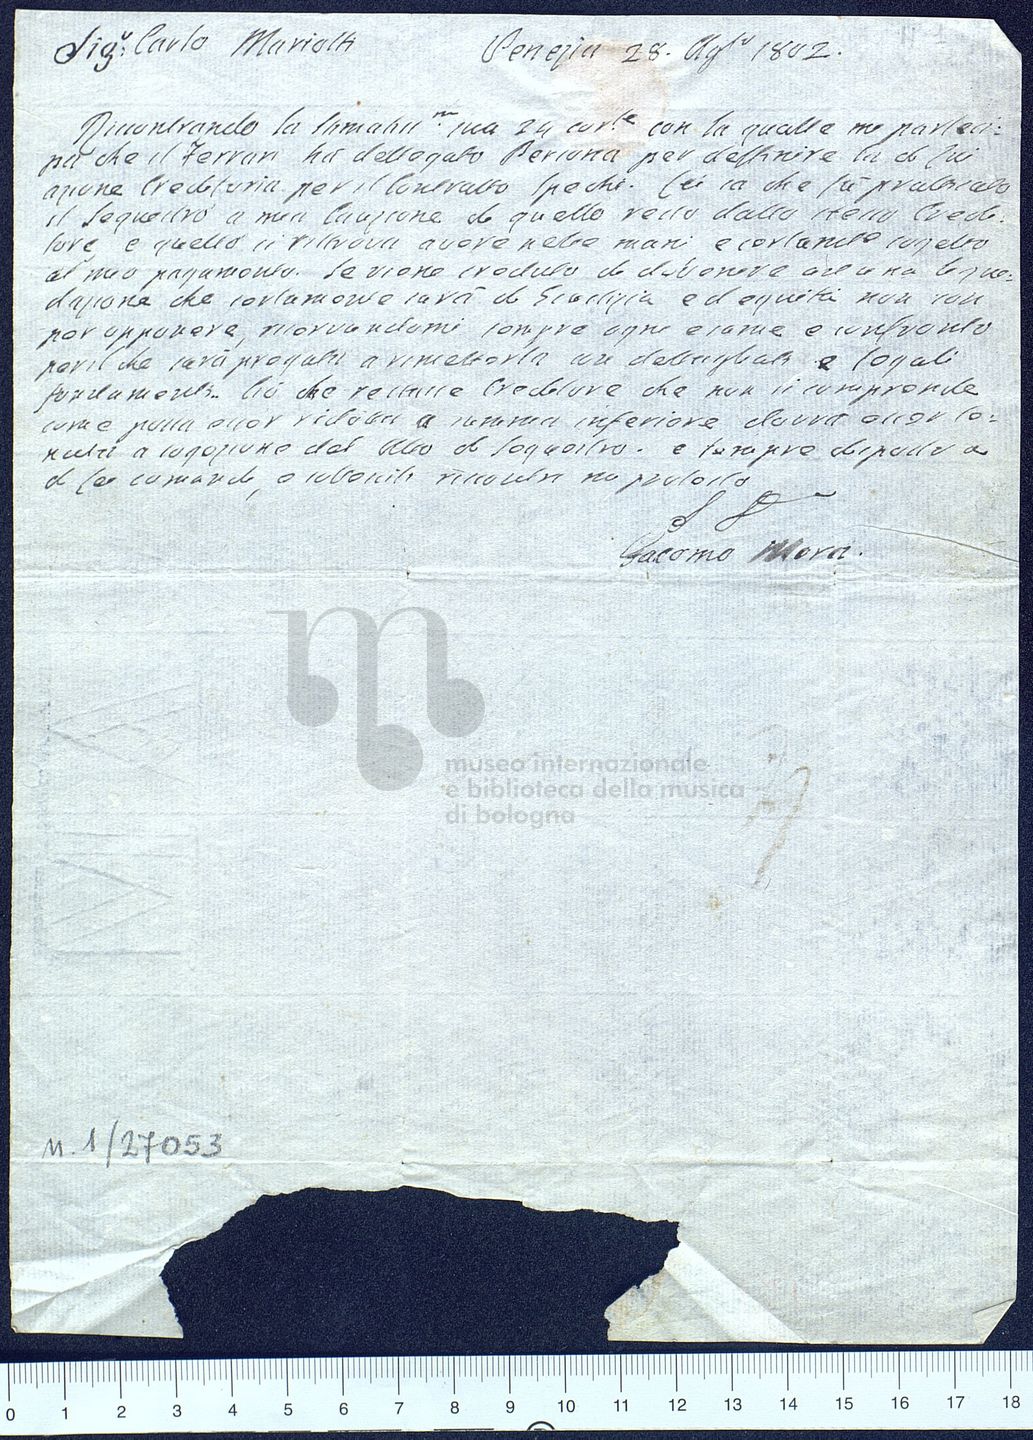 Sig.r Carlo Mariotti Venezia 28. Ag.to 1802.
Riscontrando la stimatis.ma sua 24 cor.te con la qualle me parteci-
pa che il Ferrari hà dellegato Persona per deffinire la di Lui
azione Creditoria per il Contratto Specchi. Lei sa che fù praticato
il Sequestro a mia Cauzione di quello resta dalla stessa Credi-
tore, e quello si ritrova avere nelle mani e
al mio pagamento. Se viene creduto di divenire ad una liqui-
dazione che certamente sarà di Giustizia ed equità non son
per opponere, riservandomi sempre ogni esame e confronto
per il che sarà pregato a rimetterla con dettagliati e legali
fondamenti. Ciò che restasse Creditore che non si comprende
come possa esser ridotta a summa inferiore dovrà esser te-
nuta a sogezione dal Atto di Sequestro. e sempre disposto a
di Lei comandi, riscontri mi protesto
Giacomo Mora.
museo internazionale
e biblioteca della musica
di bologna
n. 1/27053
0 1 2 3 4 5 6 7 8 9 10 11 12 13 14 15 16 17 18